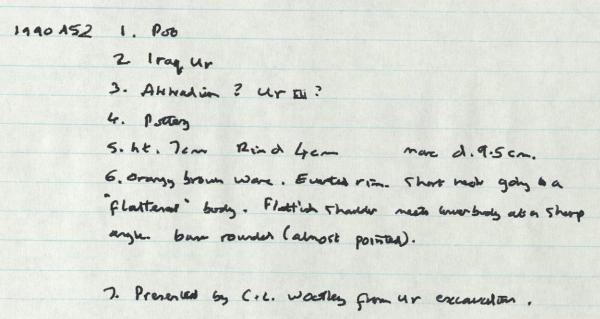 1990 A52 1. Pot
2. Iraq Ur
3. Akkadian ? Ur III ?
4. Pottery
5. ht. 7cm Rim d 4cm max d. 9.5cm.
6. Orangy brown ware. Everted rim. Short neck going to a
"flattened" body. Flattish shoulder meets lower body at a sharp
angle. base rounded (almost pointed).
7. Presented by C.L. Woolley from Ur excavation.